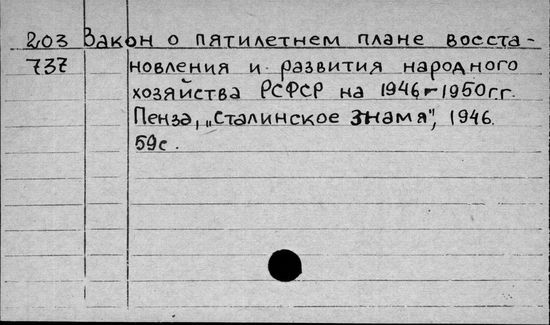 203 Закон о пятилетнем плане восста-
737 новления и развития народного
хозяйства РСФСР на 1946-1950г.г.
Пенза, „Сталинское знамя", 1946.
59с.